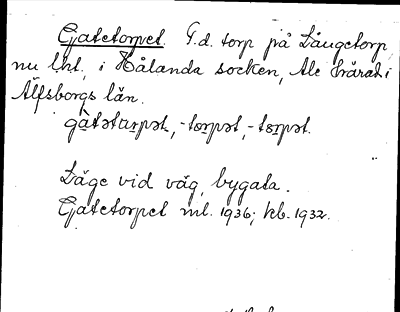 Gatetorpet. F.d. torp på Långetorp,
nu lht, i Hålanda socken, Ale härad i
Älfsborgs län.
gàtətur̲pət, -tor̲pət, -tɵr̲pət.
Läge vid väg, bygata.
Gatetorpet ml. 1936; kb. 1932.